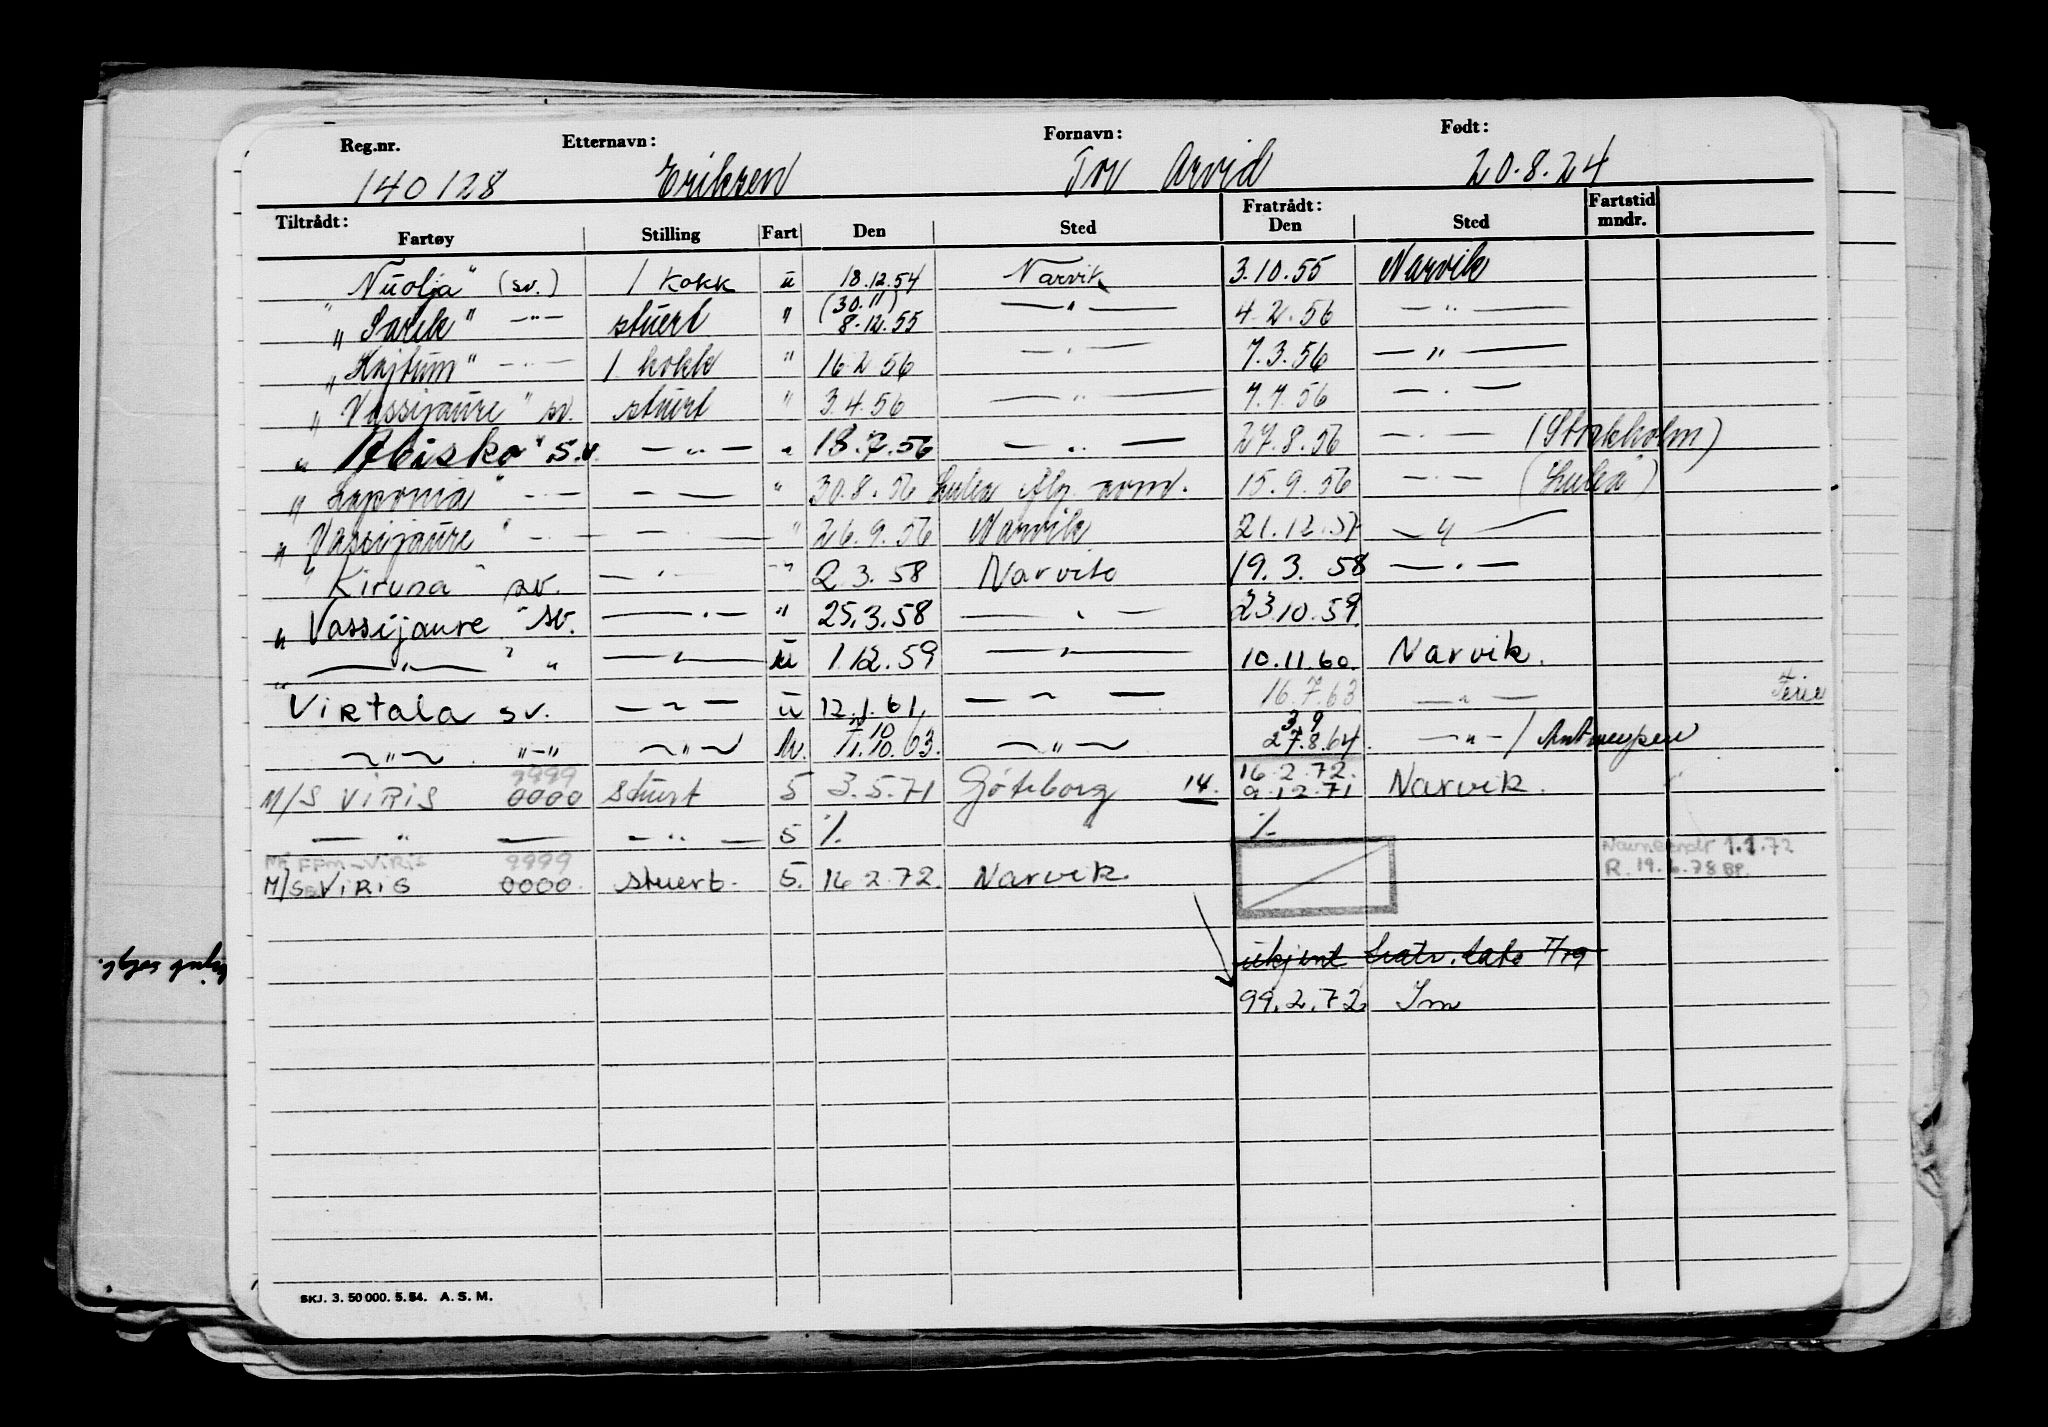 Reg.nr. Etternavn: Fornavn: Født:
140128 Eriksen Tor Arvid 20.8.24
Tiltrådt: Fratrådt: Fartstid
Fartøy Stilling Fart Den Sted Den Sted mndr.
"Nuolja" (sv.) 1 kokk u 18.12.54 Narvik 3.10.55 Narvik
(30.11)
"Sarek" -"- stuert " 8.12.55 -"- 4.2.56 -"-
"Kajtum" -"- 1 kokk " 16.2.56 -"- 7.3.56 -"-
"Vassijaure" sv. stuert " 3.4.56 -"- 7.7.56 -"-
"Abisko" s.v. -"- " 13.7.56 -"- 27.8.56 -"- (Stockholm)
"Laponia" -"- -"- " 30.8.56 Luleå 15.9.56 -"- (Luleå)
"Vassijaure" -"- -"- " 26.9.56 Narvik 21.12.57 -"-
"Kiruna" sv. -"- -"- 2.3.58 Narvik 19.3.58 -"-
"Vassijaure" sv. -"- " 25.3.58 -"- 23.10.59.
"-"-" " -"- u 1.12.59 -"- 10.11.60. Narvik.
Virtala sv. -"- u 12.1.61. -"- 16.7.63 -"- Ferie
10 3.9
-"- "-" -"- 11.10.63. -"- 27.8.64. -"- / Antwerpen
9999 16.2.72.
M/S VIRIS 0000 stuert 5 3.5.71 Göteborg 14. 9.12.71 Narvik.
-"- -"- 5 %. %
FFM-VIRIS 9999 1.1.72
M/S VIRIS 0000. stuert. 5. 16.2.72. Narvik. R. 19.6.78 BP.
ukjent fratr. dato
99.2.72. Im
SKJ. 3. 50 000. 5. 54. A. S. M.